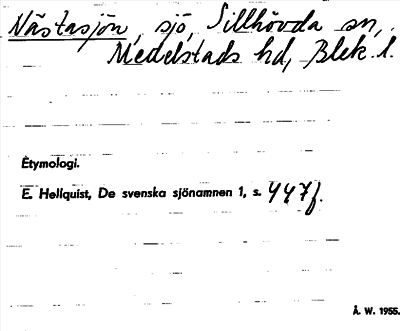 Nästasjön, sjö, Sillhövda sn,
Medelstads hd, Blek. l.
Etymologi.
E. Hellquist, De svenska sjönamnen 1, s. 447f.
Å. W. 1955.